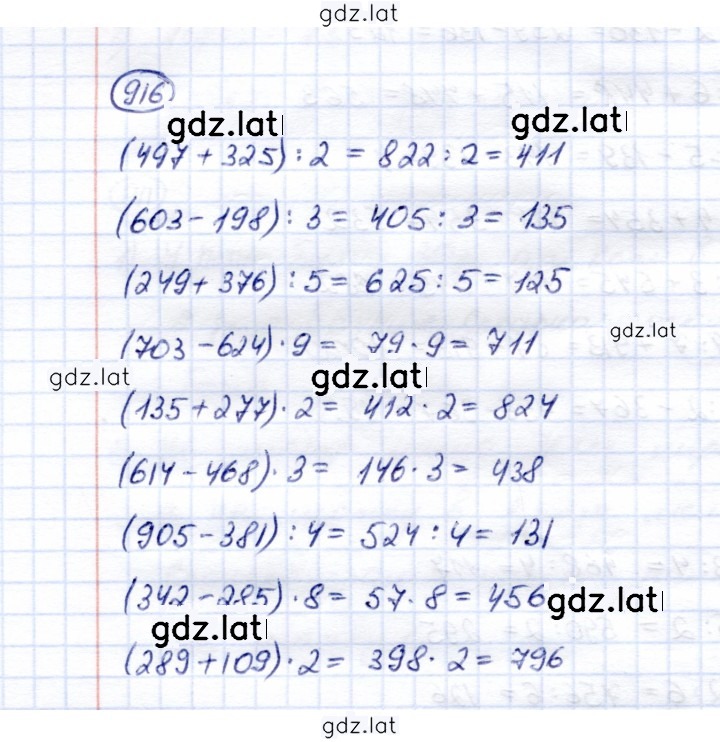 gdz.lat
916
gdz.lat gdz.lat
(497 + 325) : 2 = 822 : 2 = 411
(603 - 198) : 3 = 405 : 3 = 135
(249 + 376) : 5 = 625 : 5 = 125
gdz.lat
(703 - 624) · 9 = 79 · 9 = 711
gdz.lat gdz.lat
(135 + 277) · 2 = 412 · 2 = 824
(614 - 468) · 3 = 146 · 3 = 438
(905 - 381) : 4 = 524 : 4 = 131
(342 - 285) · 8 = 57 · 8 = 456
gdz.lat
gdz.lat
(289 + 109) · 2 = 398 · 2 = 796
gdz.lat